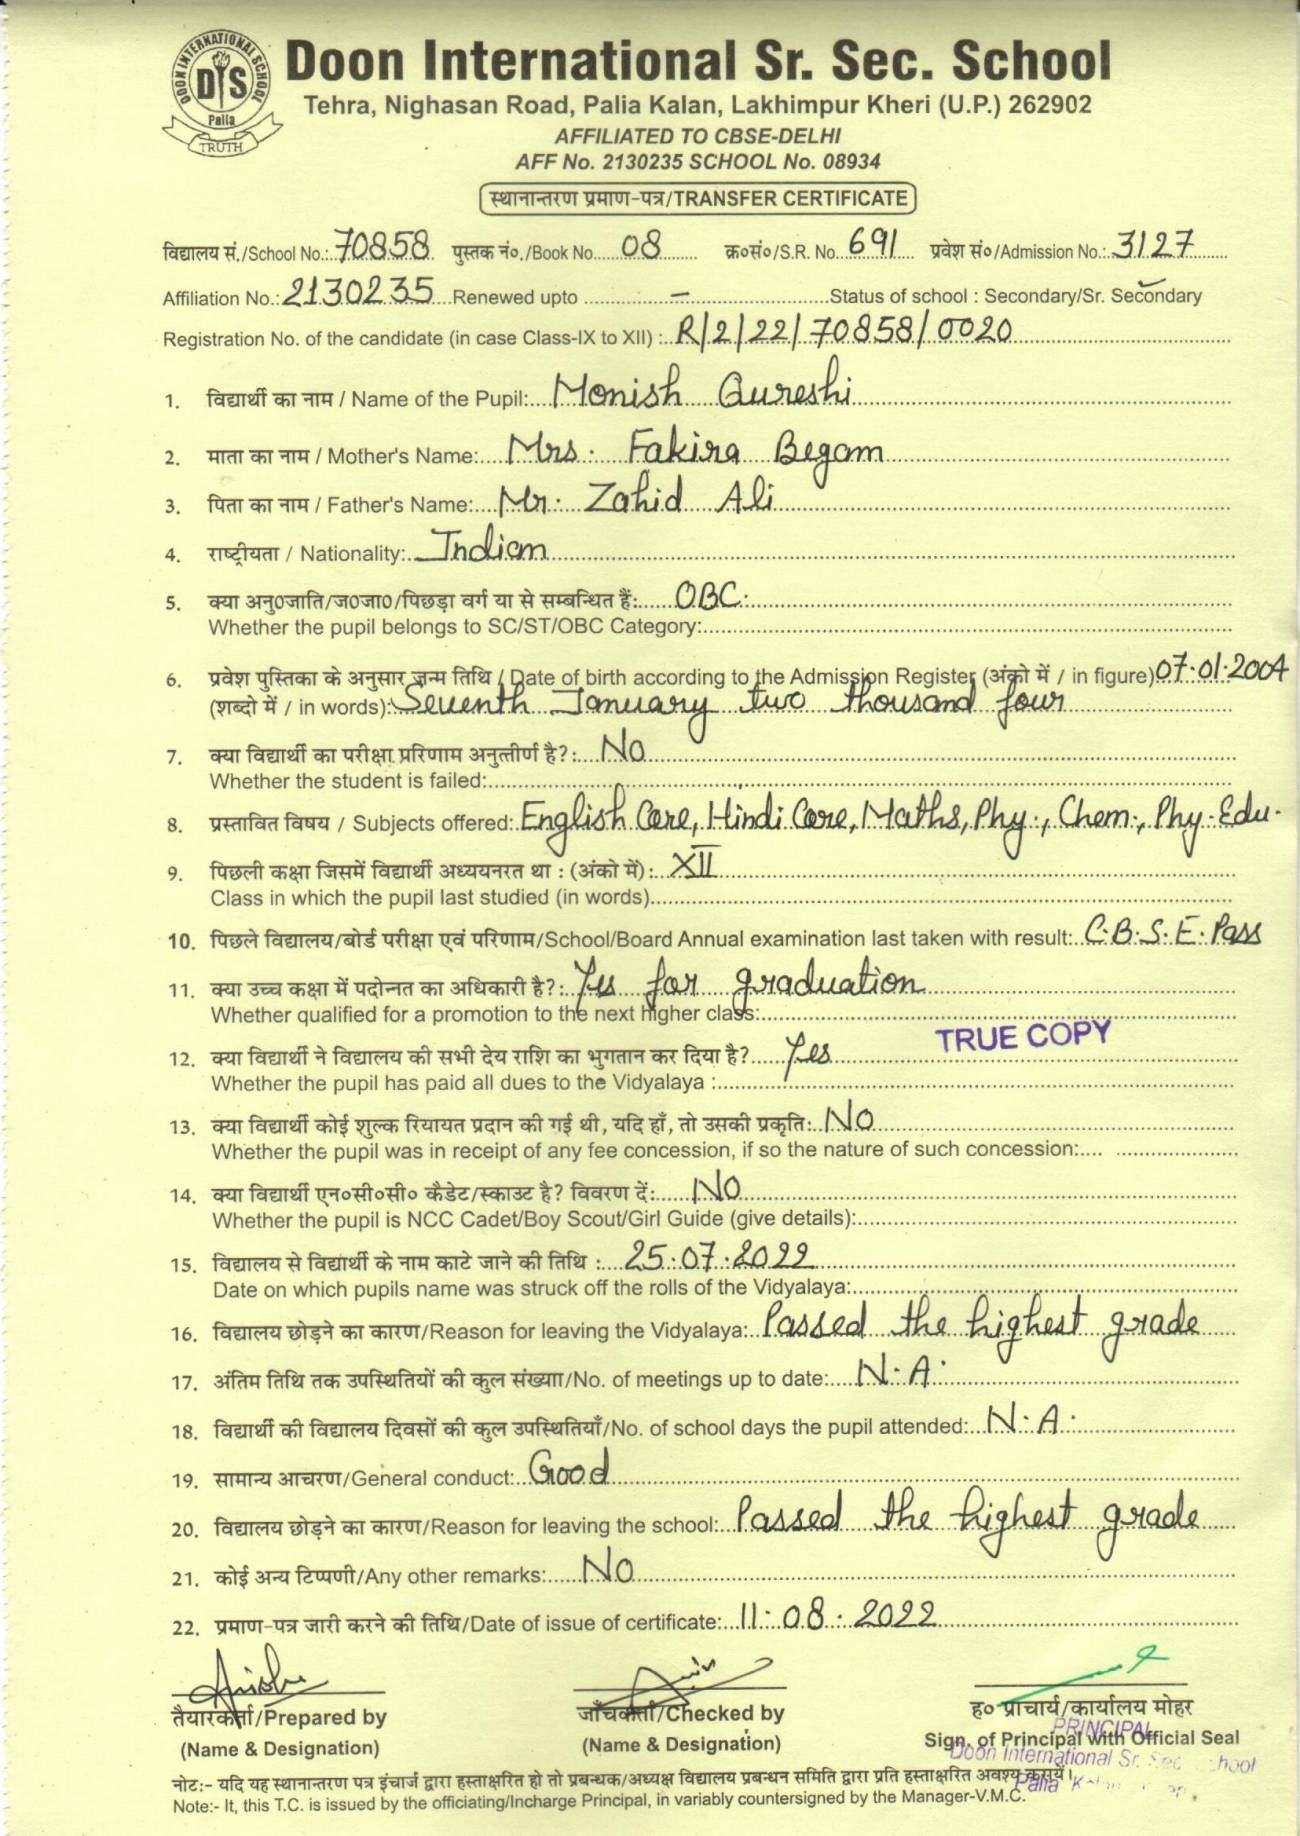 DOON INTERNATIONAL SCHOOL
DIS
Palia
TRUTH
Doon International Sr. Sec. School
Tehra, Nighasan Road, Palia Kalan, Lakhimpur Kheri (U.P.) 262902
AFFILIATED TO CBSE-DELHI
AFF No. 2130235 SCHOOL No. 08934
स्थानान्तरण प्रमाण-पत्र/TRANSFER CERTIFICATE
विद्यालय सं./School No.: 70858 पुस्तक नं०./Book No. 08 क्र०सं०/S.R. No. 691 प्रवेश सं०/Admission No.: 3127
Affiliation No.: 2130235 Renewed upto – Status of school : Secondary/Sr. Secondary
Registration No. of the candidate (in case Class-IX to XII) : R/2/22/70858/0020
1. विद्यार्थी का नाम / Name of the Pupil: Monish Qureshi
2. माता का नाम / Mother's Name: Mrs. Fakira Begam
3. पिता का नाम / Father's Name: Mr. Zahid Ali
4. राष्ट्रीयता / Nationality: Indian
5. क्या अनु0जाति/ज0जा0/पिछड़ा वर्ग या से सम्बन्धित हैं: OBC.
Whether the pupil belongs to SC/ST/OBC Category:
6. प्रवेश पुस्तिका के अनुसार जन्म तिथि / Date of birth according to the Admission Register (अंको में / in figure) 07.01.2004
(शब्दो में / in words): Seventh January two thousand four
7. क्या विद्यार्थी का परीक्षा परिणाम अनुत्तीर्ण है?: No
Whether the student is failed:
8. प्रस्तावित विषय / Subjects offered: English Core, Hindi Core, Maths, Phy., Chem., Phy. Edu.
9. पिछली कक्षा जिसमें विद्यार्थी अध्ययनरत था : (अंको में): XII
Class in which the pupil last studied (in words)
10. पिछले विद्यालय/बोर्ड परीक्षा एवं परिणाम/School/Board Annual examination last taken with result: C.B.S.E. Pass
11. क्या उच्च कक्षा में पदोन्नत का अधिकारी है?: Yes for graduation
Whether qualified for a promotion to the next higher class:
TRUE COPY
12. क्या विद्यार्थी ने विद्यालय की सभी देय राशि का भुगतान कर दिया है? Yes
Whether the pupil has paid all dues to the Vidyalaya :
13. क्या विद्यार्थी कोई शुल्क रियायत प्रदान की गई थी, यदि हाँ, तो उसकी प्रकृति: No
Whether the pupil was in receipt of any fee concession, if so the nature of such concession:
14. क्या विद्यार्थी एन०सी०सी० कैडेट/स्काउट है? विवरण दें: No
Whether the pupil is NCC Cadet/Boy Scout/Girl Guide (give details):
15. विद्यालय से विद्यार्थी के नाम काटे जाने की तिथि : 25.07.2022
Date on which pupils name was struck off the rolls of the Vidyalaya:
16. विद्यालय छोड़ने का कारण/Reason for leaving the Vidyalaya: Passed the highest grade
17. अंतिम तिथि तक उपस्थितियों की कुल संख्या/No. of meetings up to date: N.A.
18. विद्यार्थी की विद्यालय दिवसों की कुल उपस्थितियाँ/No. of school days the pupil attended: N.A.
19. सामान्य आचरण/General conduct: Good
20. विद्यालय छोड़ने का कारण/Reason for leaving the school: Passed the highest grade
21. कोई अन्य टिप्पणी/Any other remarks: No
22. प्रमाण-पत्र जारी करने की तिथि/Date of issue of certificate: 11.08.2022
तैयारकर्ता/Prepared by जाँचकर्ता/Checked by ह० प्राचार्य/कार्यालय मोहर
(Name & Designation) (Name & Designation) Sign. of Principal with Official Seal
PRINCIPAL
Doon International Sr. Sec. School
Palia
नोटः- यदि यह स्थानान्तरण पत्र इंचार्ज द्वारा हस्ताक्षरित हो तो प्रबन्धक/अध्यक्ष विद्यालय प्रबन्धन समिति द्वारा प्रति हस्ताक्षरित अवश्य करायें।
Note:- It, this T.C. is issued by the officiating/Incharge Principal, in variably countersigned by the Manager-V.M.C.